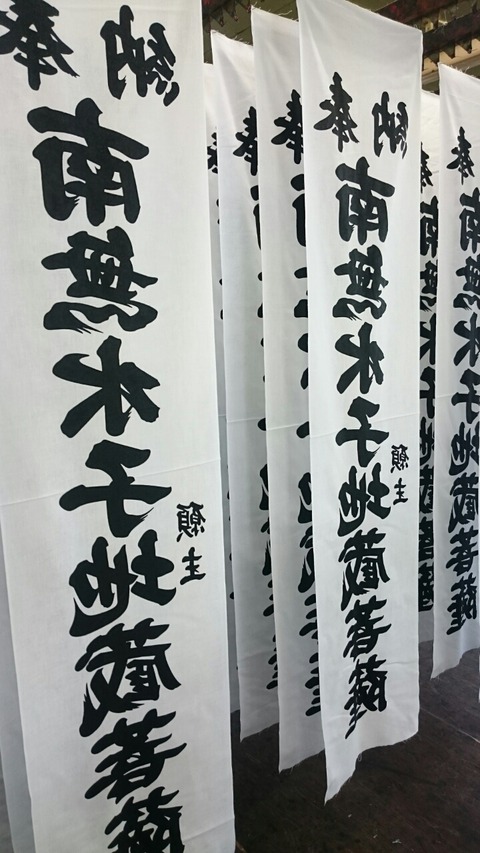 奉納
南無水子地蔵菩薩
願主
奉
奉
奉納
南無水子地蔵菩薩
願主
奉
南無水子地蔵菩薩